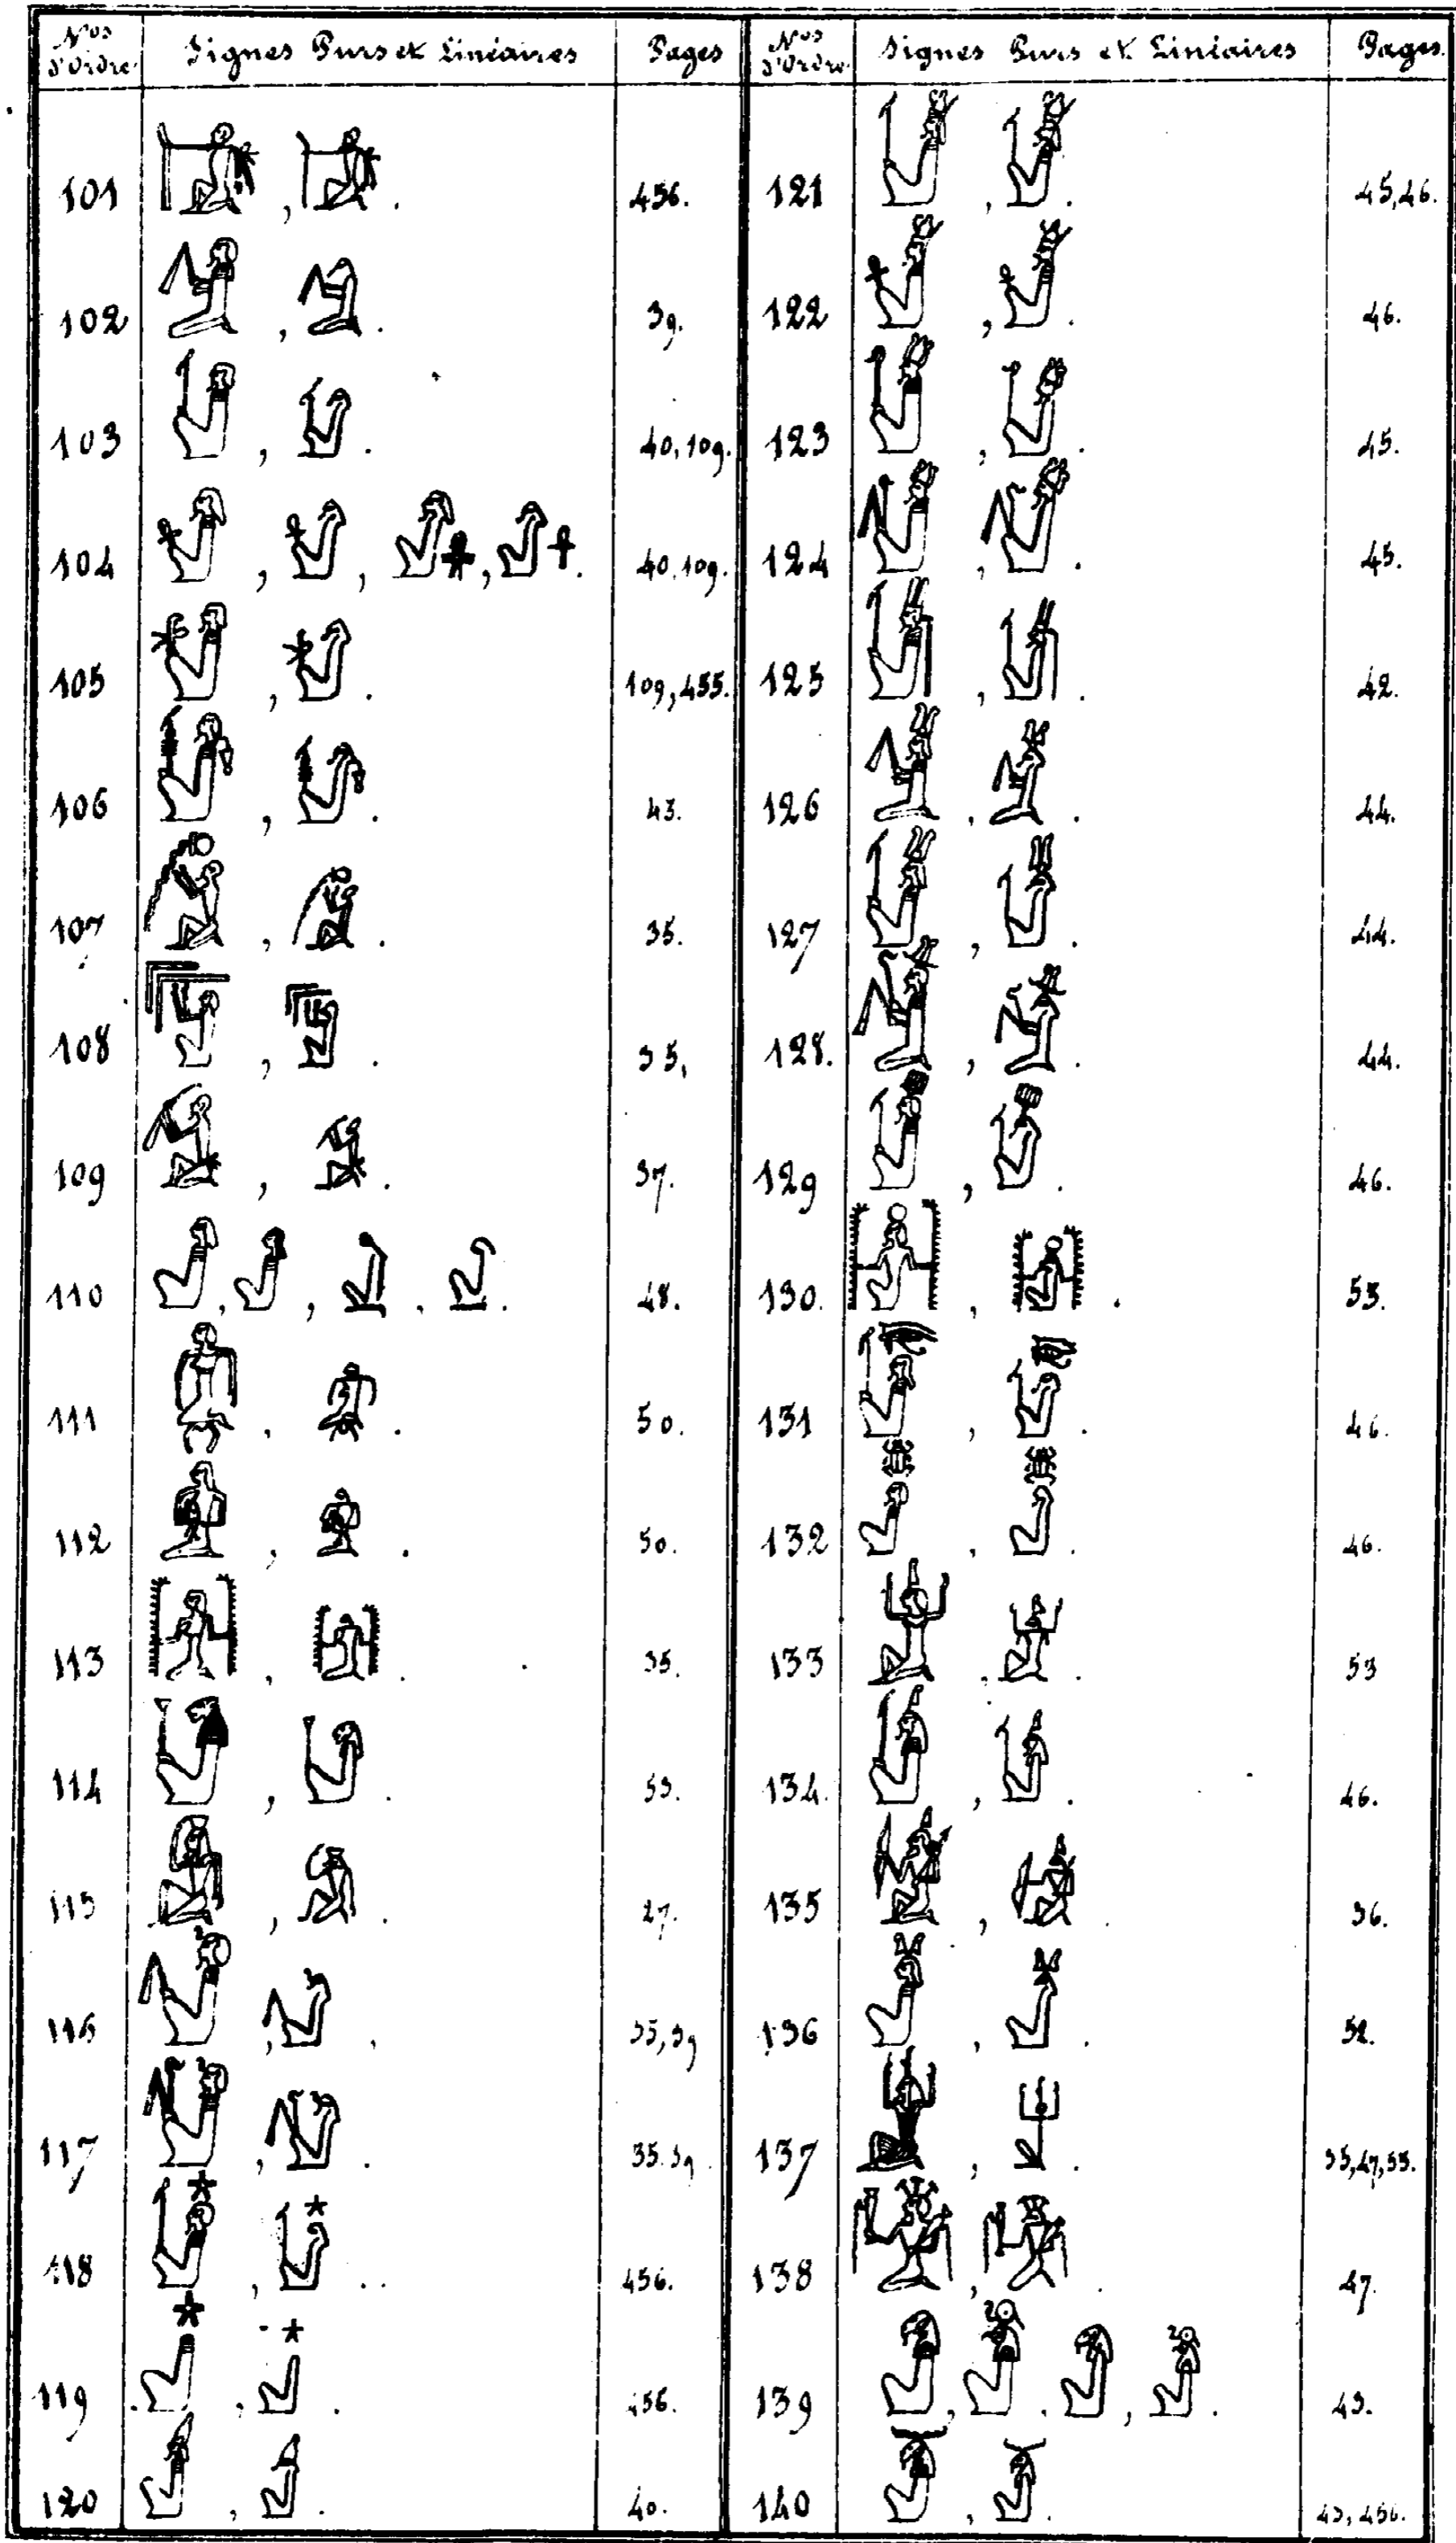 Nos d'Ordre Signes Purs et Linéaires Pages Nos d'Ordre Signes Purs et Linéaires Pages
101 , . 456. 121 , . 45,46.
102 , . 39. 122 , . 46.
103 , . 40,109. 123 , . 45.
104 , , , . 40,109. 124 , . 45.
105 , . 109,455. 125 , . 42.
106 , . 43. 126 , . 44.
107 , . 35. 127 , . 44.
108 , . 35, 128. , . 44.
109 , . 37. 129 , . 46.
110 , , , . 48. 130. , . 53.
111 , . 50. 131 , . 46.
112 , . 50. 132 , . 46.
113 , . 35. 133 , . 53
114 , . 53. 134. , . 46.
115 , . 27. 135 , . 36.
116 , . 35,39 136 , . 52.
117 , . 35.39. 137 , . 35,47,53.
118 , . 456. 138 , . 47.
119 , . 456. 139 , . , . 43.
120 , . 40. 140 , . 43,456.